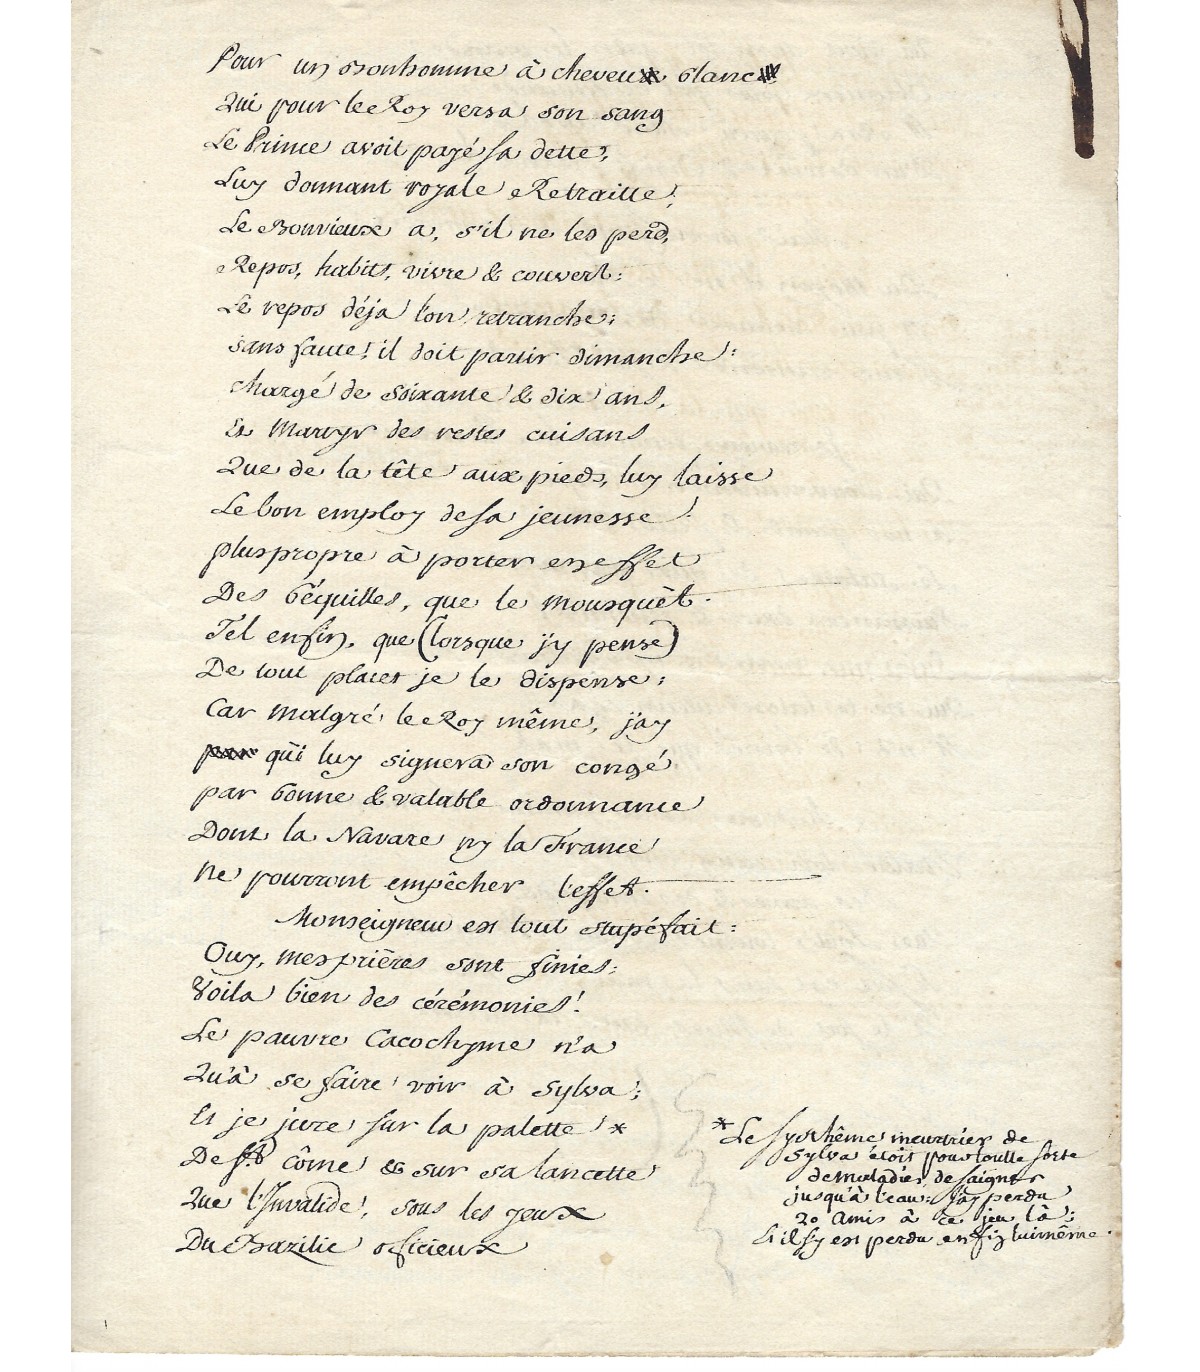 Pour un Bonhomme à cheveux blancs
Qui pour le Roy versa son sang
Le Prince avoit payé sa dette,
Luy donnant royale Retraitte;
Le Bonvieux a, s'il ne les perd,
Repos, habits, vivre & couvert:
Le repos déja l'on retranche;
sans faute! il doit partir dimanche:
chargé de soixante & dix ans,
Et Martyr des restes cuisans
Que de la tête aux pieds, luy laisse
Le bon employ de sa jeunesse!
plus propre à porter en effet
Des béquilles, que le mousquèt.
Tel enfin, que (lorsque j'y pense)
De tout placet je le dispense:
Car malgré le Roy même, j'ay
par qui luy signera son congé
par bonne & valable ordonnance
Dont la Navare ny la France
ne pourront empêcher l'effet.
Monseigneur est tout stupéfait:
Ouy, mes prières sont finies:
Voila bien des cérémonies!
Le pauvre Cacochyme n'a
Qu'à se faire voir à Sylva;
Et je jure sur la palette *
De St côme & sur sa lancette
Que l'Invalide, sous les yeux
Du Bazilic officieux
* Le systhême meurtrier de
Sylva étoit pour toutte sorte
de maladies de saigner
jusqu'à l'eau: j'ay perdu
20 amis à ce jeu là;
Et il s'y est perdu enfin luimême.